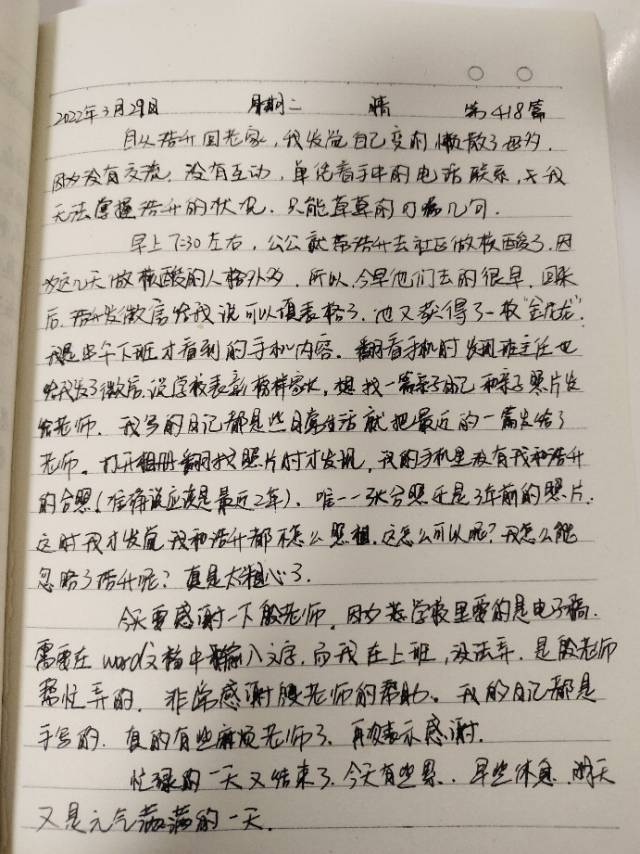 2022年3月29日 星期二 晴 第418篇
自从浩升回老家，我发觉自己变的懒散了许多。
因为没有交流，没有互动，单凭着手中的电话联系，
无法掌握浩升的状况，只能草草的写几句。
早上7:30左右，公公就带浩升去社区做核酸了，因
为这几天做核酸的人格外多，所以，今早他们去的很早，回来
后，浩升发微信给我说可以填表格了，他又获得了一枚“金龙龙”，
我是中午下班才看到的手机内容。翻看手机时发现班主任也
给我发了微信，说学校表彰榜样家长，想找一篇亲子日记和亲子照片发
给老师。我写的日记都是些日常生活就把最近的一篇发给了
老师。打开相册翻找照片时才发现，我的手机里没有我和浩升
的合照（准确说应该是最近2年）。唯一一张合照还是3年前的照片。
这时我才发觉我和浩升都不怎么照相，这怎么可以呢？我怎么能
忽略了浩升呢？真是太粗心了。
今天要感谢一下殷老师，因为学校里要的是电子稿，
需要在word文档中输入文字，而我在上班，没法弄，是殷老师
帮忙弄的，非常感谢殷老师的帮助。我的日记都是
手写的，真的有些麻烦老师了，再次表示感谢。
忙碌的一天又结束了，今天有些累，早些休息，明天
又是元气满满的一天。